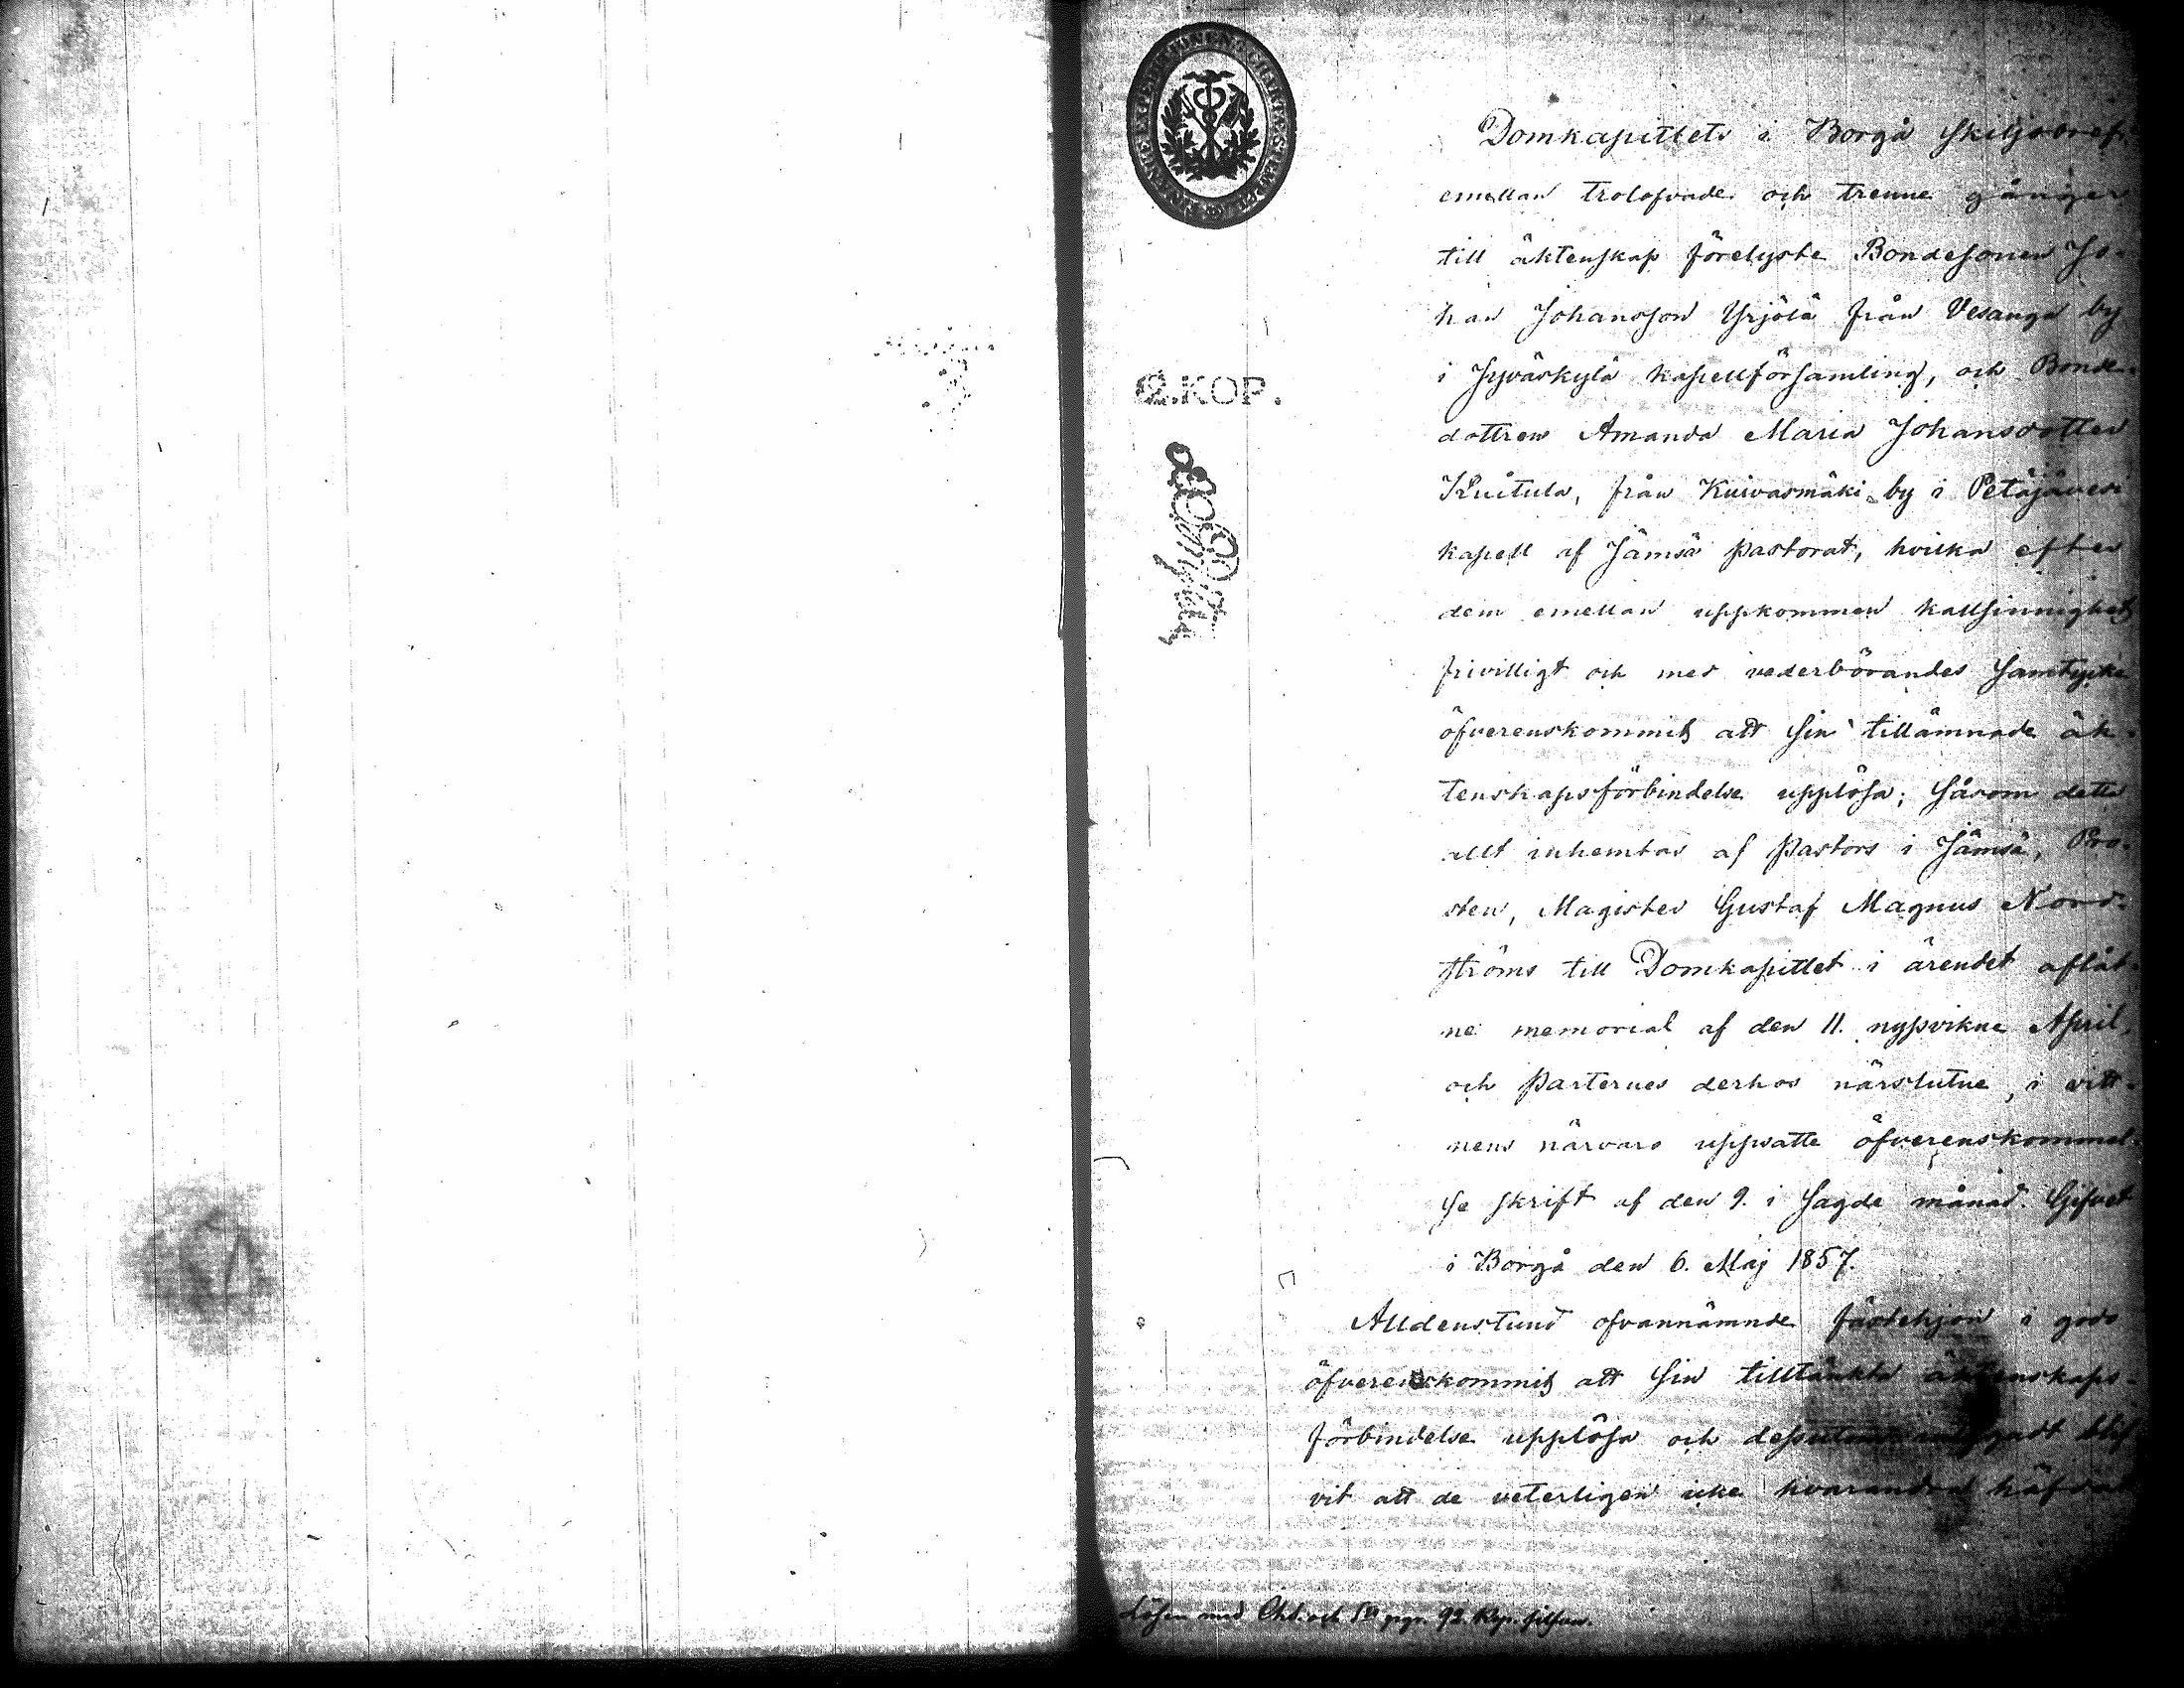 2.KOP.
Domkapitlets i Borgå skiljobref
emellan trolofvade och trenne gånger
till äktenskap förelyste Bondesonen Jo-
han Johansson Yrjölä från Vesanga by
i Jyväskylä kapellförsamling, och Bonde-
dottren Amanda Maria Johansdotter
Kuitula, från Kuivasmäki by i Petäjävesi
kapell af Jämsä pastorat, hvilka efter
dem emellan uppkommen kallsinnighet
frivilligt och med vederbörandes samtycke
öfverenskommit att sin tillämnade äk-
tenskapsförbindelse upplösa; såsom detta
allt inhemtas af Pastors i Jämsä, Pro-
sten, Magister Gustaf Magnus Nord-
ströms till Domkapitlet i ärendet aflåt-
ne memorial af den 11. nyssvikne April,
och Parternes derhos närslutne, i vitt-
nens närvaro uppsatte öfverenskommel-
se skrift af den 9. i sagde månad. Gifvet
i Borgå den 6. Maj 1857.
Alldenstund ofvannämnde fästehjon i godo
öfverenskommit att sin tilltänkta äktenskaps-
förbindelse upplösa och dessutom intygadt blif-
vit att de veterligen icke hvarandra häfdat
Lösen med Ch. och 92. Kop. silfver.